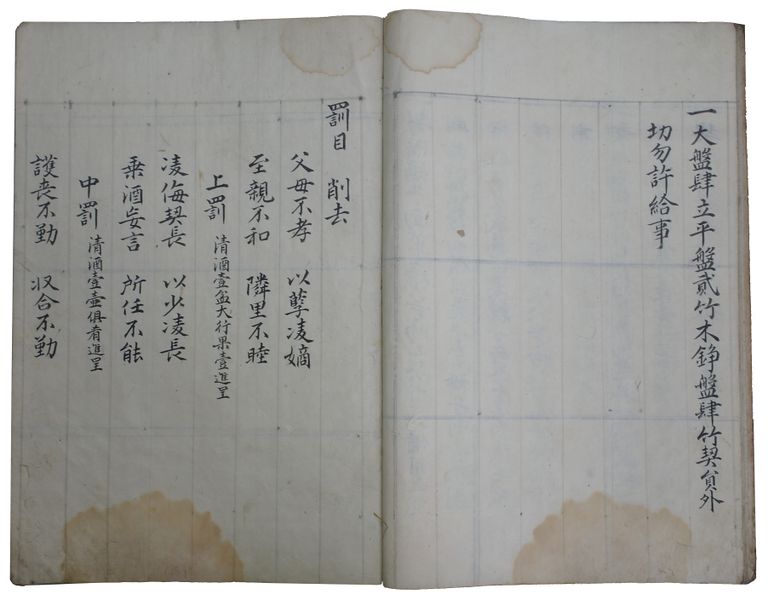 一大盤肆立平盤貳竹木錚盤肆竹契員外
切勿許給事
罰目 削去
父母不孝 以孽凌嫡
至親不和 隣里不睦
上罰 清酒壹盆大行果壹進呈
凌侮契長 以少凌長
乗酒妄言 所任不能
中罰 清酒壹壷俱肴進呈
護喪不勤 収合不勤